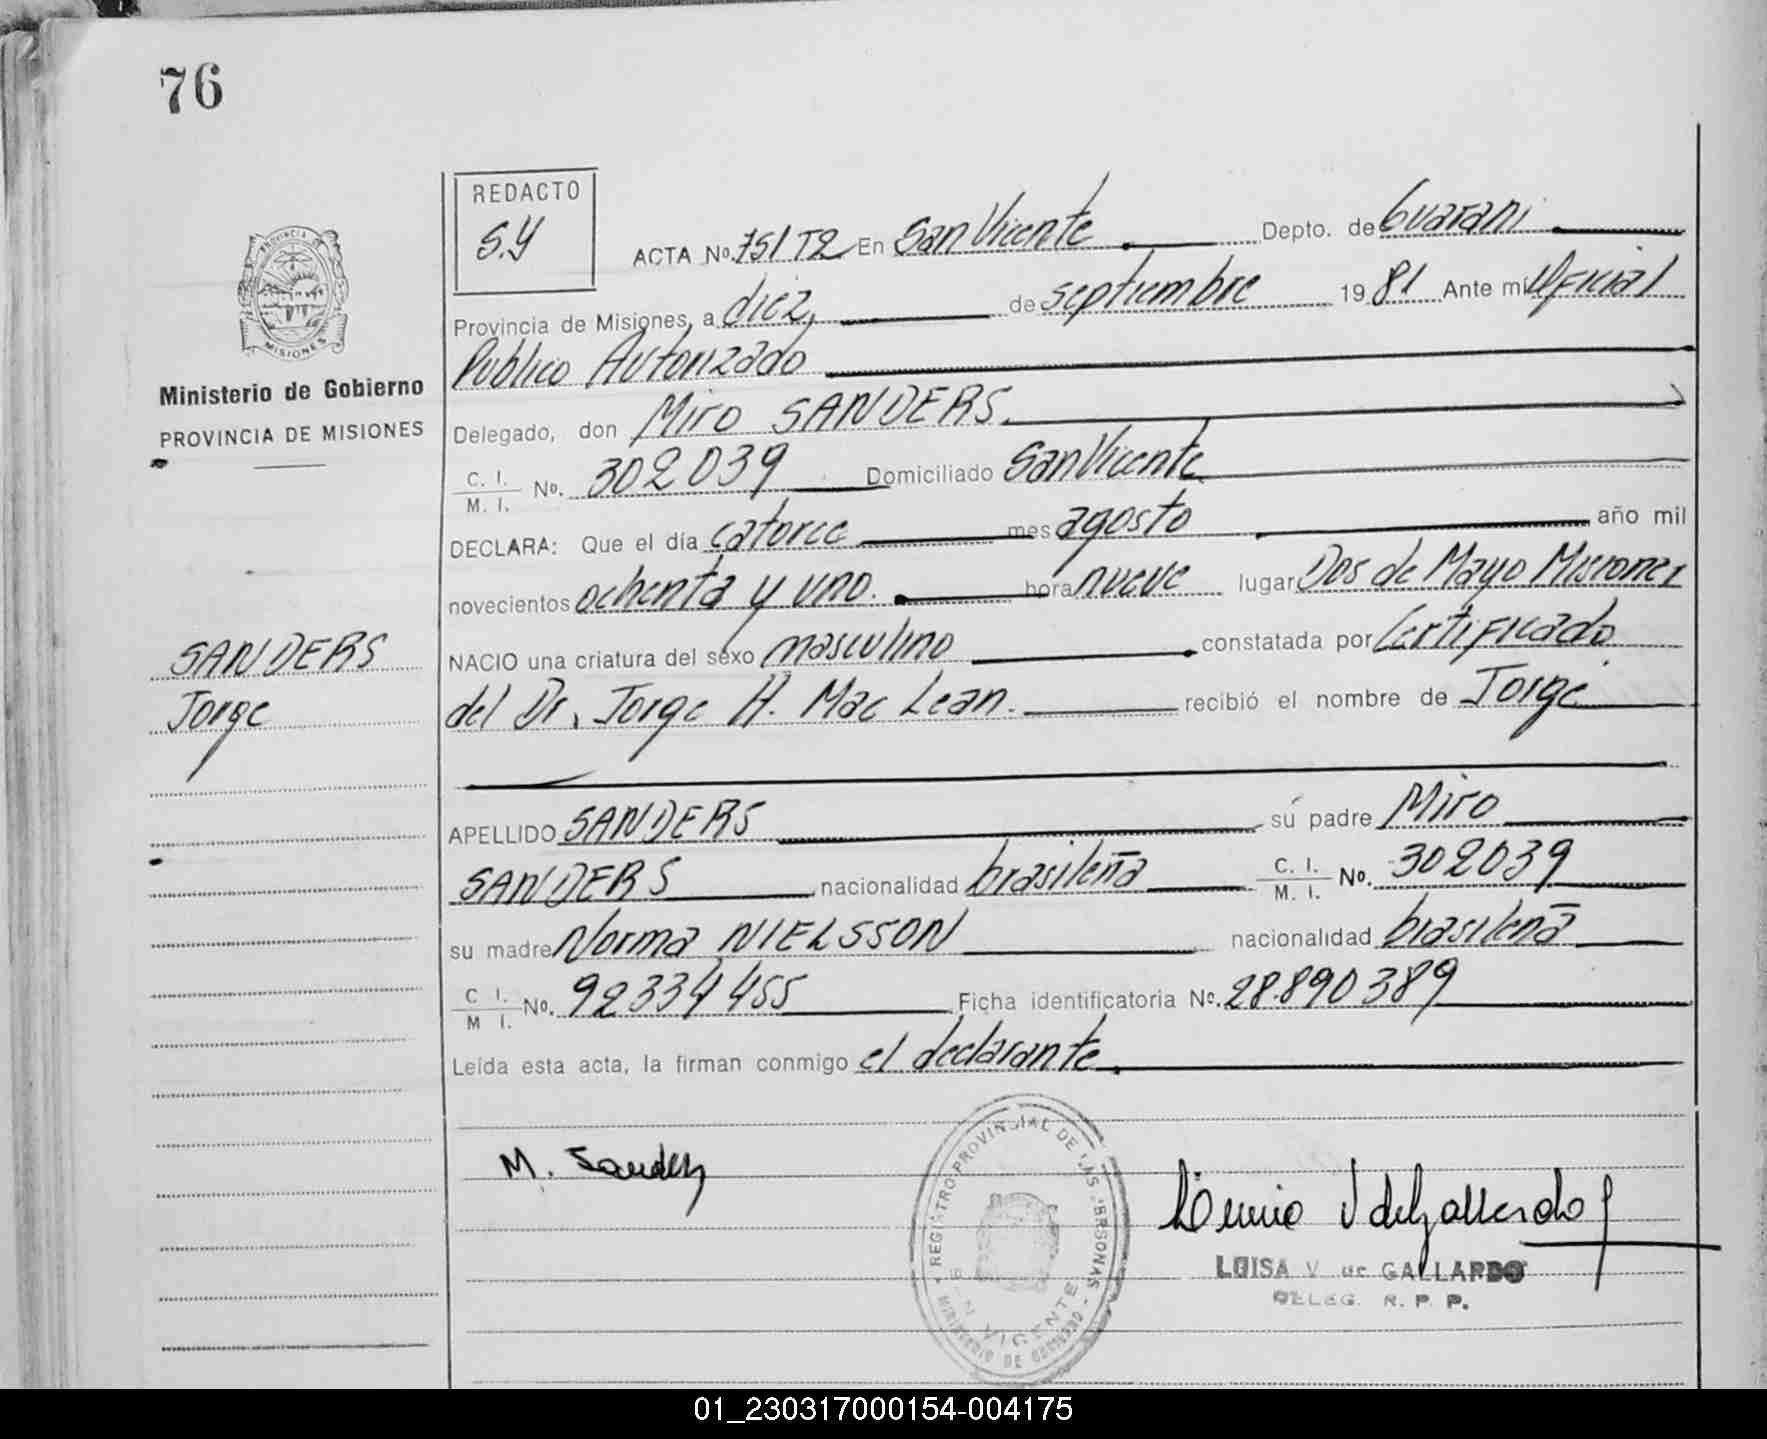 76
REDACTO
S.Y
ACTA No. 751 T2 En San Vicente Depto. de Guarani
Provincia de Misiones, a diez, de septiembre 1981 Ante mi Oficial
Publico Autorizado
Delegado, don Miro SANDERS.
C. I.
M. I. No. 302039 Domiciliado San Vicente
DECLARA: Que el día catorce mes agosto año mil
novecientos ochenta y uno. hora nueve lugar Dos de Mayo Misiones
NACIO una criatura del sexo masculino constatada por Certificado
del Dr. Jorge H. Mac Lean. recibió el nombre de Jorge
APELLIDO SANDERS sú padre Miro
SANDERS nacionalidad brasileña C. I.
M. I. No. 302039
su madre Norma NIELSSON nacionalidad brasileña
C I.
M I. No. 92334455 Ficha identificatoria No. 28.890389
Leída esta acta, la firman conmigo el declarante.
PROVINCIA DE
MISIONES
Ministerio de Gobierno
PROVINCIA DE MISIONES
SANDERS
Jorge
M. Sanders
REGISTRO PROVINCIAL DE LAS PERSONAS
MINISTERIO DE GOBIERNO
VICENTE
V de Gallardo
LUISA V de GALLARDO
DELEG. R. P. P.
01_230317000154-004175